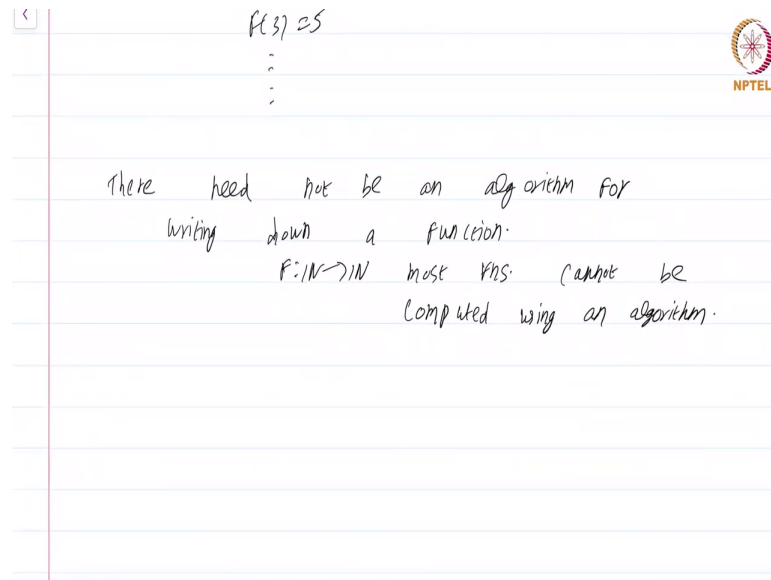 F(3) = 5
:
:
NPTEL
There need not be an algorithm for
writing down a function.
F: ℕ → ℕ most fns. cannot be
computed using an algorithm.